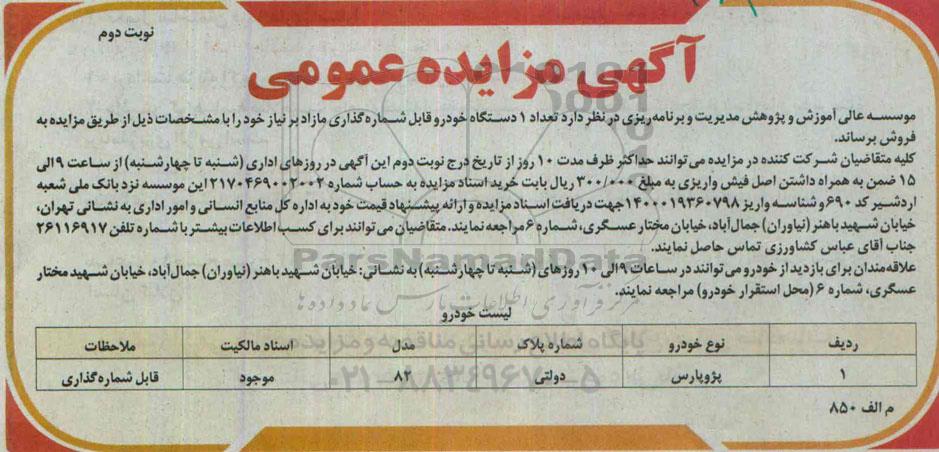 نوبت دوم
آگهی مزایده عمومی
موسسه عالی آموزش و پژوهش مدیریت و برنامه‌ریزی در نظر دارد تعداد ۱ دستگاه خودرو قابل شماره گذاری مازاد بر نیاز خود را با مشخصات ذیل از طریق مزایده به
فروش برساند.
کلیه متقاضیان شرکت کننده در مزایده می‌توانند حداکثر ظرف مدت ۱۰ روز از تاریخ درج نوبت دوم این آگهی در روزهای اداری (شنبه تا چهارشنبه) از ساعت ۹ الی
۱۵ ضمن به همراه داشتن اصل فیش واریزی به مبلغ ۳۰۰/۰۰۰ ریال بابت خرید اسناد مزایده به حساب شماره ۲۱۷۰۴۶۹۰۰۲۰۰۲ این موسسه نزد بانک ملی شعبه
اردشیر کد ۶۹۰ و شناسه واریز ۱۴۰۰۰۱۹۳۶۰۷۹۸ جهت دریافت اسناد مزایده و ارائه پیشنهاد قیمت خود به اداره کل منابع انسانی و امور اداری به نشانی تهران،
خیابان شهید باهنر (نیاوران) جمال‌آباد، خیابان مختار عسگری، شماره ۶ مراجعه نمایند. متقاضیان می‌توانند برای کسب اطلاعات بیشتر با شماره تلفن ۲۶۱۱۶۹۱۷
جناب آقای عباس کشاورزی تماس حاصل نمایند.
علاقه‌مندان برای بازدید از خودرو می‌توانند در ساعات ۹ الی ۱۰ روزهای (شنبه تا چهارشنبه) به نشانی: خیابان شهید باهنر (نیاوران) جمال‌آباد، خیابان شهید مختار
عسگری، شماره ۶ (محل استقرار خودرو) مراجعه نمایند.
لیست خودرو
ردیف نوع خودرو شماره پلاک مدل اسناد مالکیت ملاحظات
۱ پژو پارس دولتی ۸۲ موجود قابل شماره گذاری
م الف ۸۵۰
ParsNamadData
مرکز فرآوری اطلاعات پارس نماد داده ها
پایگاه اطلاع رسانی مناقصه و مزایده
۰۲۱-۸۸۳۴۹۶۷۰-۵